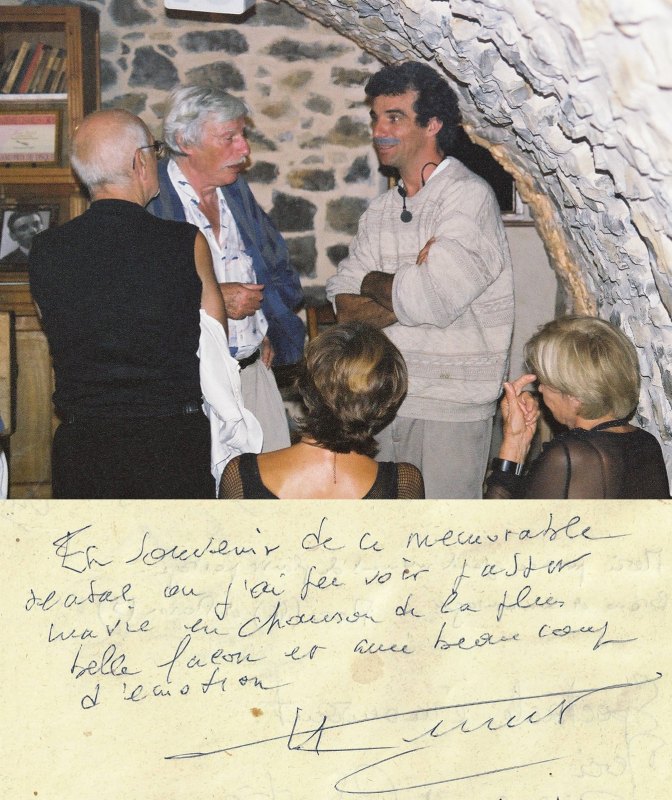 En souvenir de ce memorable
ou j'ai pu voir passer
ma vie en chanson de la plus
belle façon et avec beaucoup
d'emotion